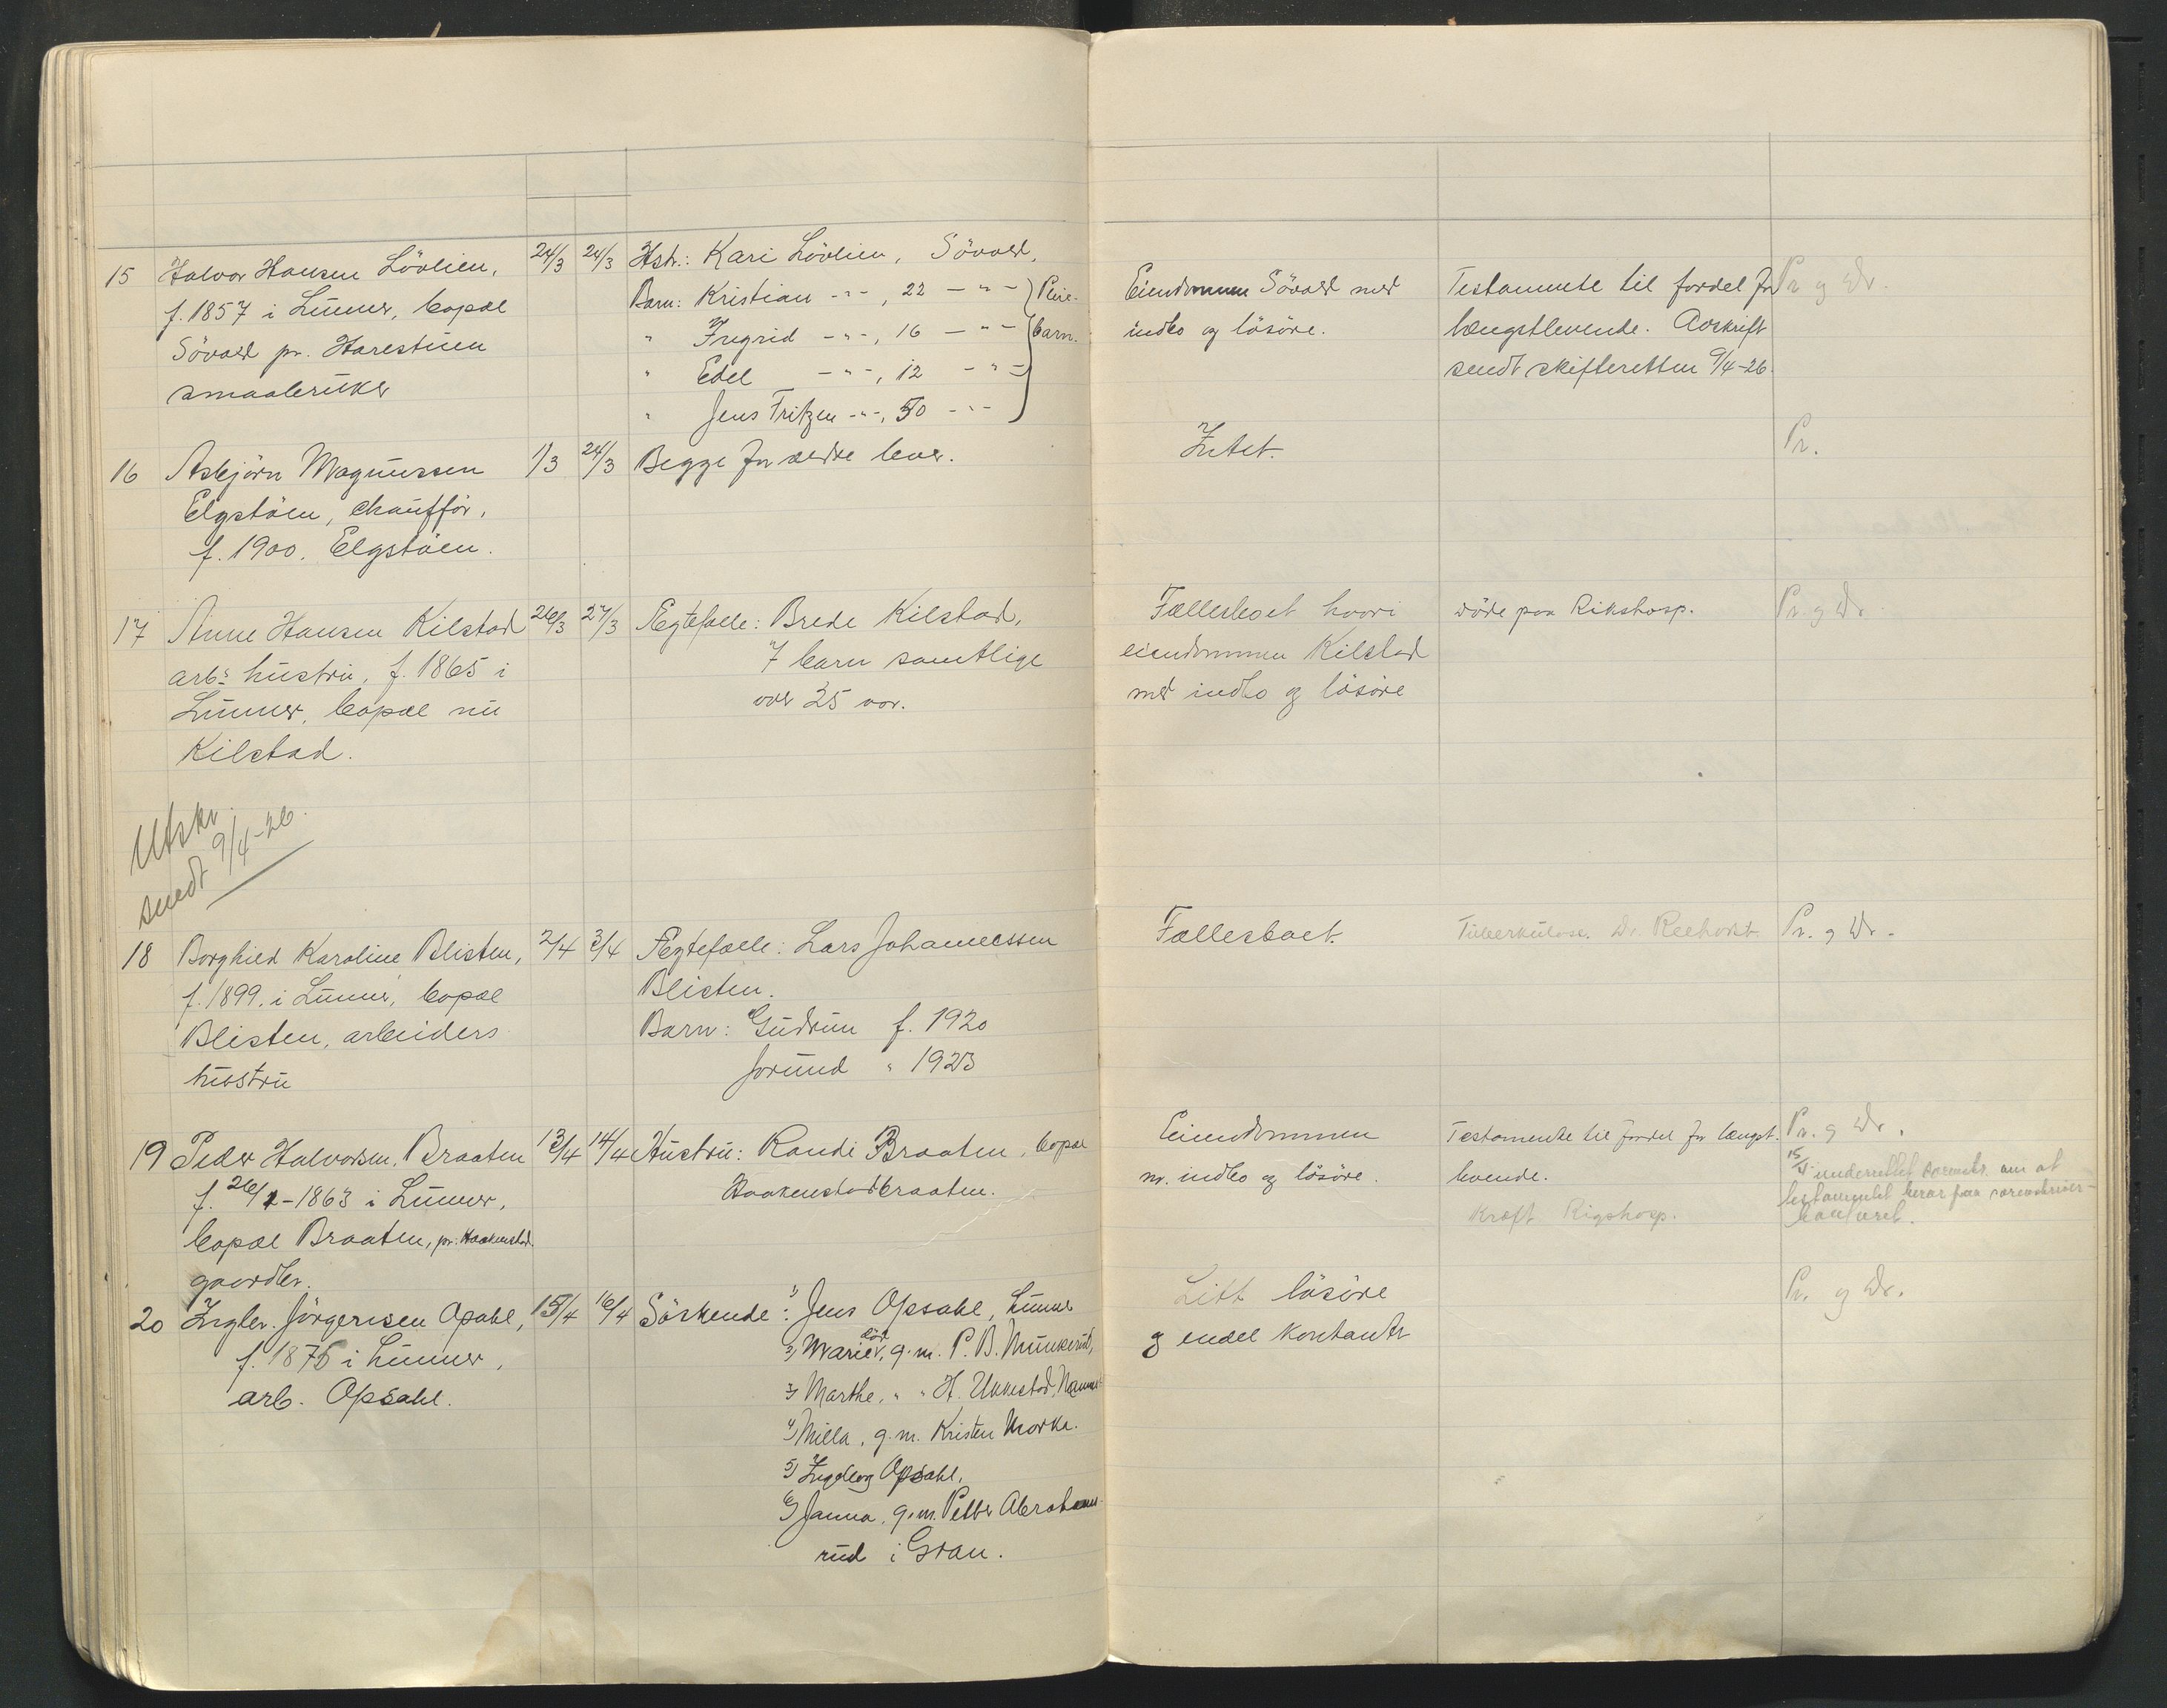 15 Halvor Hansen Lövlien, 24/3 24/3 Hstr.: Kari Lövlien, Sövold,
f. 1857 i Lunner, bopæl Barn: Kristian -"-, 22 -"-
Sövold pr. Harestuen " Ingrid -"-, 16 -"-
smaabruker " Edel -"-, 12 -"-
" Jens Fritzen -"-, 50 -"-
} Pleie-
barn.
Eiendommen Sövold med Testamente til fordel for Pr. og Dr.
indbo og lösöre. længstlevende. Avskrift
sendt skifteretten 9/4-26.
16 Asbjörn Magnussen 1/3 24/3 Begge forældre lever. Intet. Pr.
Elgstöen, chaufför,
f. 1900. Elgstöen.
17 Anne Hansen Kilstad 26/3 27/3 Ægtefælle: Brede Kilstad,
arbs hustru, f. 1865 i 7 barn samtlige
Lunner, bopæl nu over 25 aar.
Kilstad.
Fællesboet hvori döde paa Rikshosp. Pr. og Dr.
eiendommen Kilstad
med indbo og lösöre
Utskr.
sendt 9/4-26.
18 Borghild Karoline Blisten, 2/4 3/4 Ægtefælle: Lars Johannessen
f. 1899. i Lunner, bopæl Blisten.
Blisten, arbeiders Barn: Gudrun f. 1920
hustru Jorund " 1923
Fællesboet. Tuberkulose. Dr. Reehorst Pr. og Dr.
19 Peder Halvorsen Braaten 13/4 14/4 Hustru: Randi Braaten, bopæl
f. 26/1-1863 i Lunner, Haakenstadbraaten.
bopæl Braaten, pr. Haakenstad.
gaardbr.
Eiendommen Testamente til fordel for længst- Pr. og Dr.
m. indbo og lösöre. levende. 15/5 underrettet om at
Kræft Rigshosp. testamentet beror paa sorenskriver-
kontoret.
20 Ingbr. Jörgensen Opsahl, 15/4 16/4 Söskende: 1) Jens Opsahl, Lunner
f. 1875 i Lunner, 2) Marie, död, g.m. P. B. Munkerud,
arb. Opsahl. 3) Marthe, " " H. Ukkestad,
4) Milla, g.m. Kristen Morka.
5) Ingeborg Opsahl,
6) Janna, g.m. Petter Abraham-
rud i Gran.
Litt lösöre Pr. og Dr.
og endel kontanter